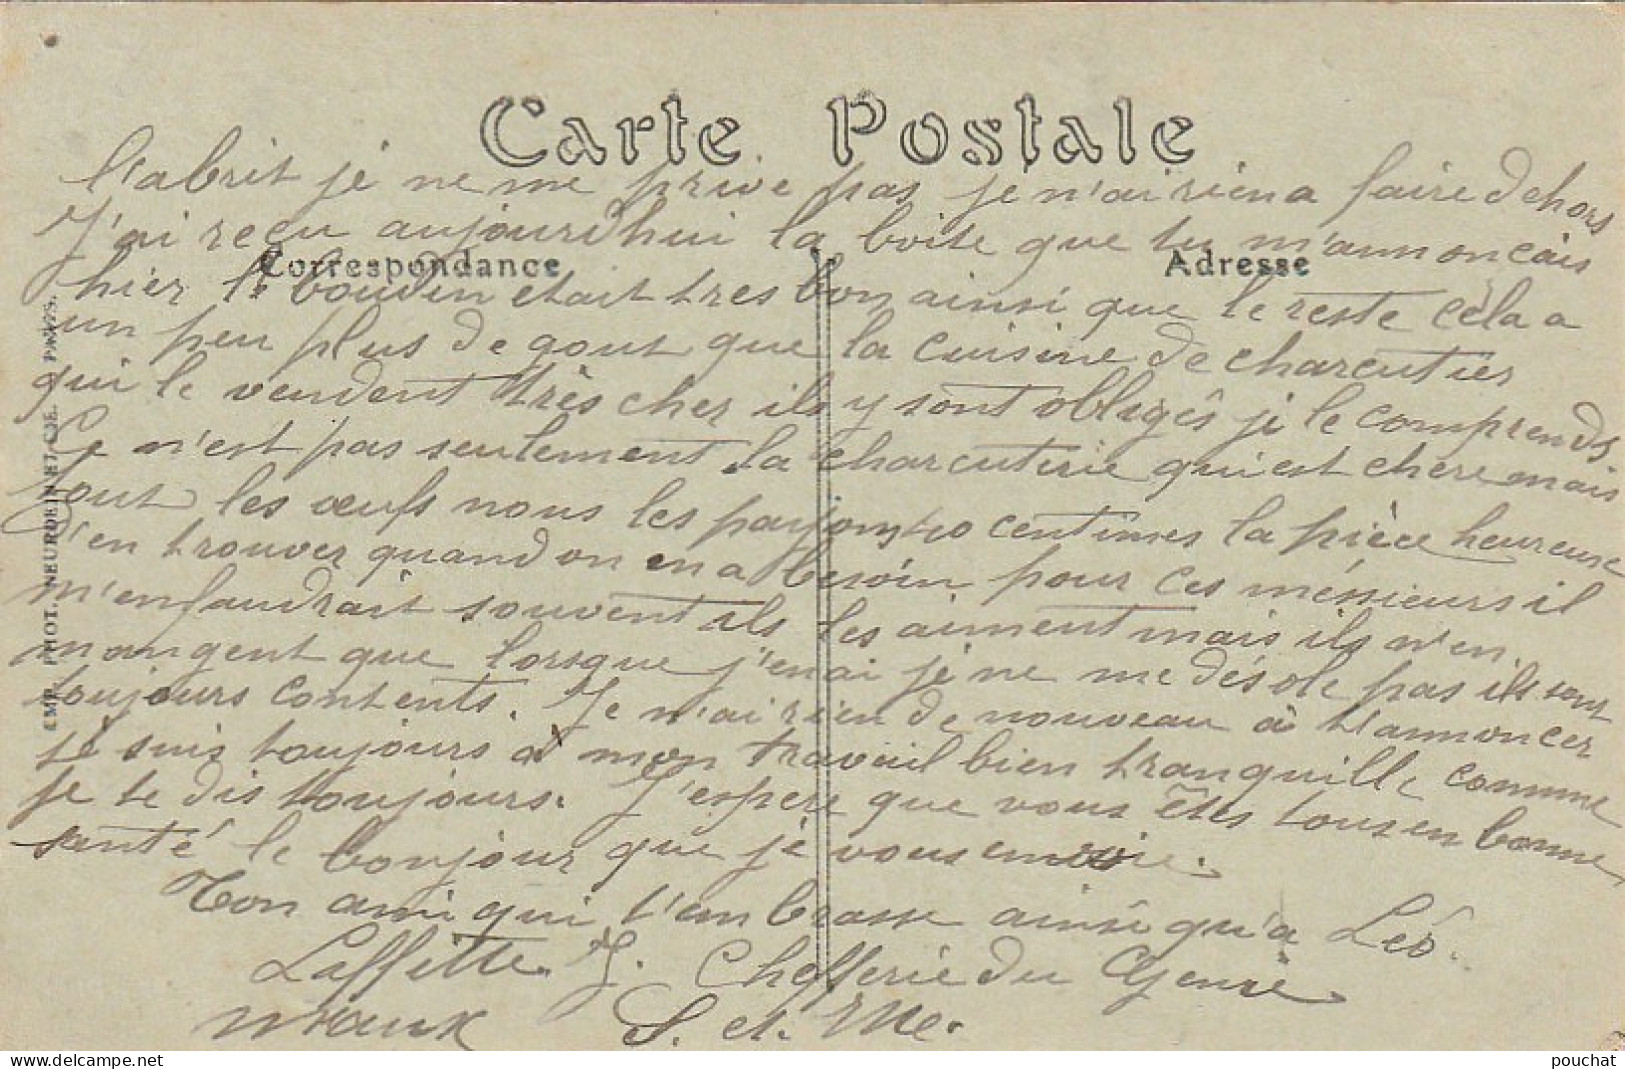 Carte Postale
l'abrit je ne me prive pas je n'ai rien a faire dehors
J'ai reçu aujourd'hui la boite que tu m'annonçais
Correspondance
Adresse
hier le boudin etait tres bon ainsi que le reste cela a
un peu plus de gout que la cuisine de charcutier
qui le vendent très cher ils y sont obligés je le comprends
Ce n'est pas seulement la charcuterie qui est chere mais
tout les œufs nous les payons 40 centimes la pièce heureuse
d'en trouver quand on en a besoin pour ces méssieurs il
m'en faudrait souvent ils les aiment mais ils n'en
mangent que lorsque j'en ai je ne me désole pas ils sont
toujours contents. Je n'ai rien de nouveau à t'annoncer
je suis toujours a mon travail bien tranquille comme
je te dis toujours. J'espere que vous êtes tous en bonne
santé le bonjour que je vous envoie.
Ton ami qui t'embrasse ainsi qu'a Léo.
Laffitte J. Chefferie du Genie
Meaux S. et Me.
EMP. PHOT. NEURDEIN ET CIE. PARIS.
www.delcampe.net
pouchat